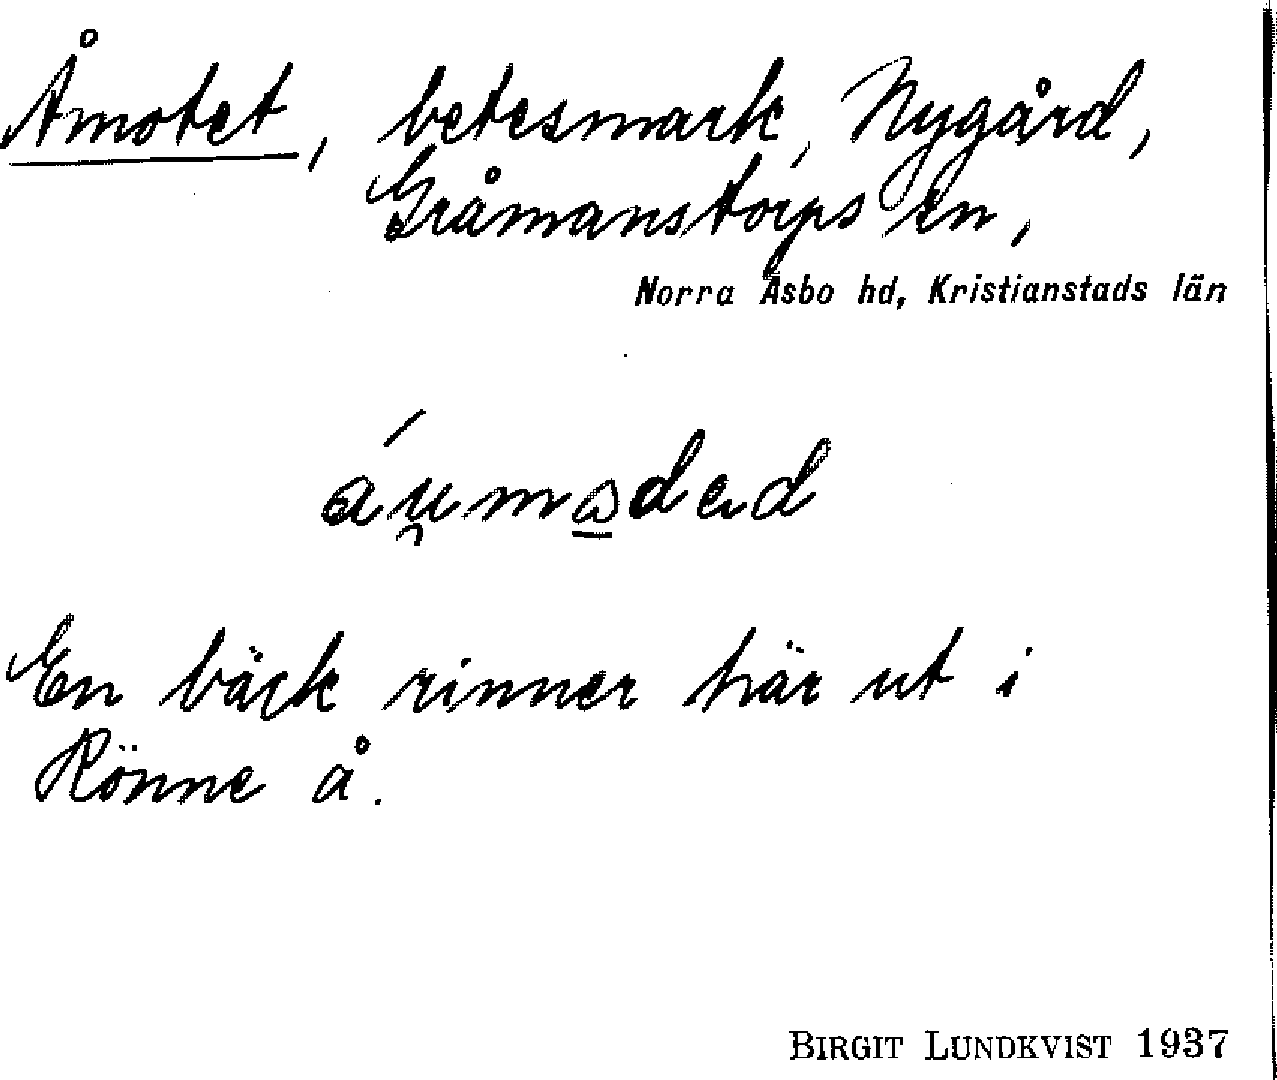 Åmotet, betesmark, Nygård,
Gråmanstorps sn,
Norra Åsbo hd, Kristianstads län
En bäck rinner här ut i
Rönne å.
BIRGIT LUNDKVIST 1937